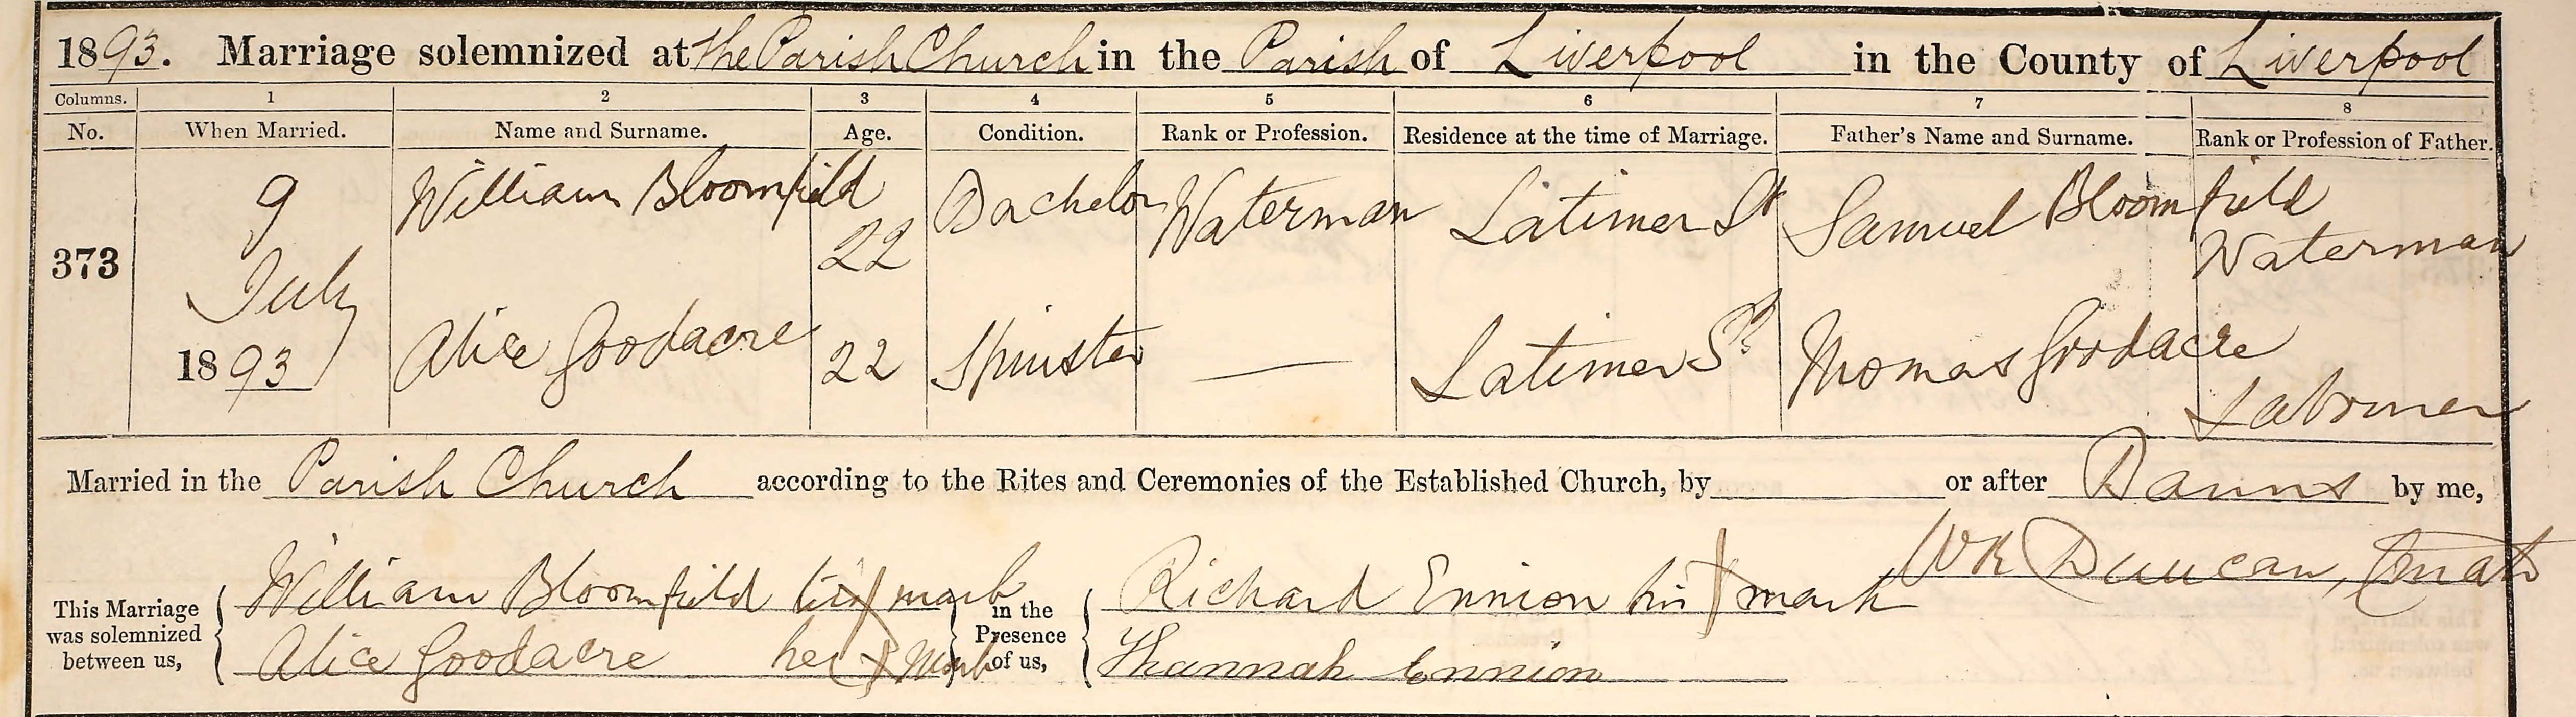 1893. Marriage solemnized at the Parish Church in the Parish of Liverpool in the County of Liverpool
Columns. 1 2 3 4 5 6 7 8
No. When Married. Name and Surname. Age. Condition. Rank or Profession. Residence at the time of Marriage. Father's Name and Surname. Rank or Profession of Father.
373 9 July 1893 William Bloomfield 22 Bachelor Waterman Latimer St Samuel Bloomfield Waterman
Alice Goodacre 22 Spinster — Latimer St Thomas Goodacre Labourer
Married in the Parish Church according to the Rites and Ceremonies of the Established Church, by or after Banns by me,
W R Duncan, Curate
This Marriage was solemnized between us, William Bloomfield his X mark in the Presence of us, Richard Ennion his X mark
Alice Goodacre her X Mark Hannah Ennion